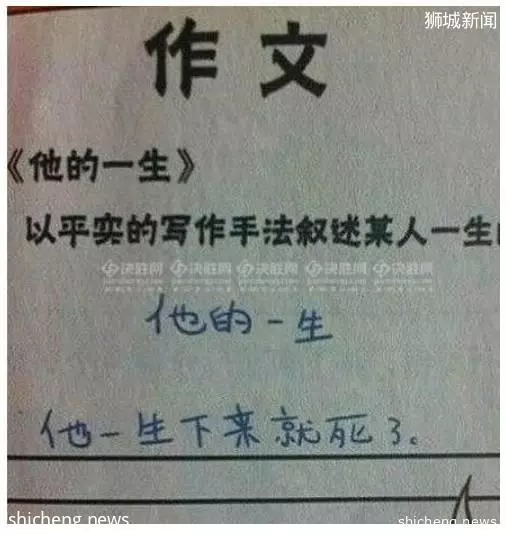 狮城新闻
作文
《他的一生》
以平实的写作手法叙述某人一生的
决胜网 决胜网 决胜网 决胜网 决胜网
他的一生
他一生下来就死了。
shicheng.news shicheng.news